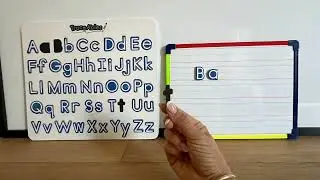 Tracing Tablet
Aa Bb Cc Dd Ee
Ff Gg Hh Ii Jj Kk
Ll Mm Nn Oo Pp
Qq Rr Ss Tt Uu
Vv Ww Xx Yy Zz
Ba
t